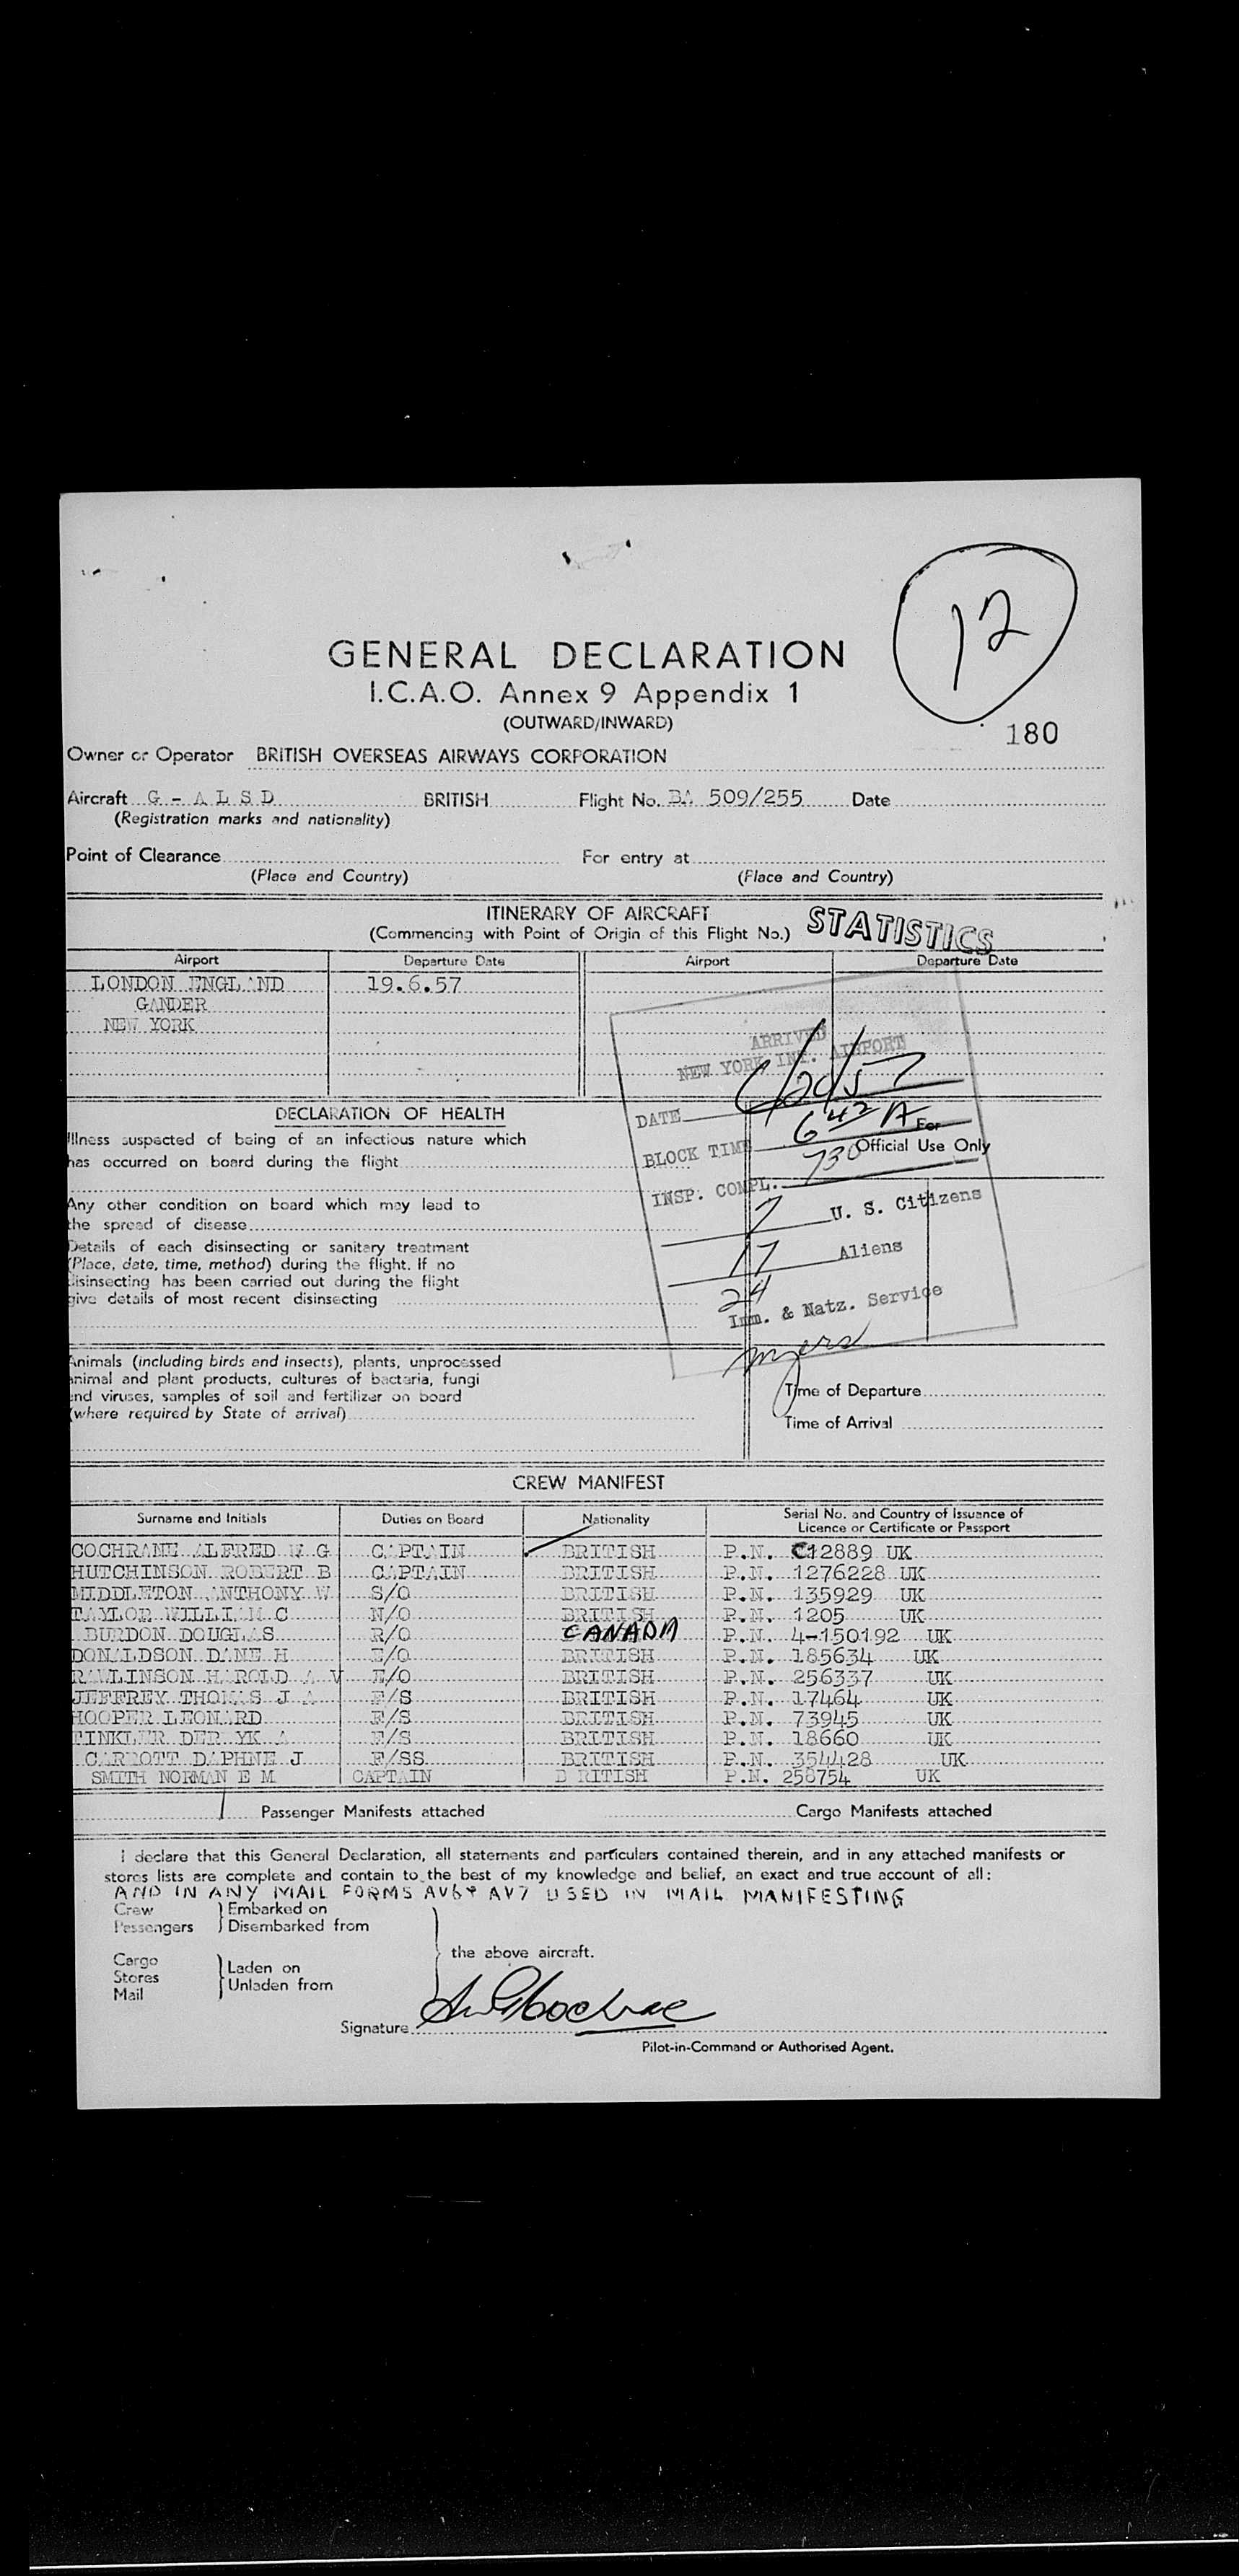 12
GENERAL DECLARATION
I.C.A.O. Annex 9 Appendix 1
(OUTWARD/INWARD)
180
Owner or Operator BRITISH OVERSEAS AIRWAYS CORPORATION
Aircraft G - A L S D BRITISH Flight No. BA 509/255 Date
(Registration marks and nationality)
Point of Clearance For entry at
(Place and Country) (Place and Country)
ITINERARY OF AIRCRAFT
(Commencing with Point of Origin of this Flight No.) STATISTICS
Airport Departure Date Airport Departure Date
LONDON ENGLAND 19.6.57
GANDER
NEW YORK
ARRIVED
NEW YORK INT. AIRPORT
DATE 6/20/57
BLOCK TIME 642 A
INSP. COMPL. 730
7 U. S. Citizens
17 Aliens
24
Imm. & Natz. Service
Myers
For
Official Use Only
DECLARATION OF HEALTH
Illness suspected of being of an infectious nature which
has occurred on board during the flight
Any other condition on board which may lead to
the spread of disease
Details of each disinsecting or sanitary treatment
(Place, date, time, method) during the flight. If no
disinsecting has been carried out during the flight
give details of most recent disinsecting
Animals (including birds and insects), plants, unprocessed
animal and plant products, cultures of bacteria, fungi
and viruses, samples of soil and fertilizer on board
(where required by State of arrival)
Time of Departure
Time of Arrival
CREW MANIFEST
Surname and Initials Duties on Board Nationality Serial No. and Country of Issuance of
Licence or Certificate or Passport
COCHRANE ALFRED W G CAPTAIN BRITISH P.N. C12889 UK
HUTCHINSON ROBERT B CAPTAIN BRITISH P.N. 1276228 UK
MIDDLETON ANTHONY W S/O BRITISH P.N. 135929 UK
TAYLOR WILLIAM C N/O BRITISH P.N. 1205 UK
BURDON DOUGLAS R/O CANADA P.N. 4-150192 UK
DONALDSON DANE H E/O BRITISH P.N. 185634 UK
RALLINSON HAROLD A V E/O BRITISH P.N. 256337 UK
JEFFREY THOMAS J A F/S BRITISH P.N. 17464 UK
HOOPER LEONARD F/S BRITISH P.N. 73945 UK
TINKLER DERYK A F/S BRITISH P.N. 18660 UK
CARROTT DAPHNE J F/SS BRITISH P.N. 354428 UK
SMITH NORMAN E M CAPTAIN B RITISH P.N. 258754 UK
1 Passenger Manifests attached Cargo Manifests attached
I declare that this General Declaration, all statements and particulars contained therein, and in any attached manifests or
stores lists are complete and contain to the best of my knowledge and belief, an exact and true account of all:
AND IN ANY MAIL FORMS AV6 & AV7 USED IN MAIL MANIFESTING
Crew Embarked on
Passengers Disembarked from
the above aircraft.
Cargo
Stores Laden on
Mail Unladen from
Signature AWGCochrane
Pilot-in-Command or Authorised Agent.